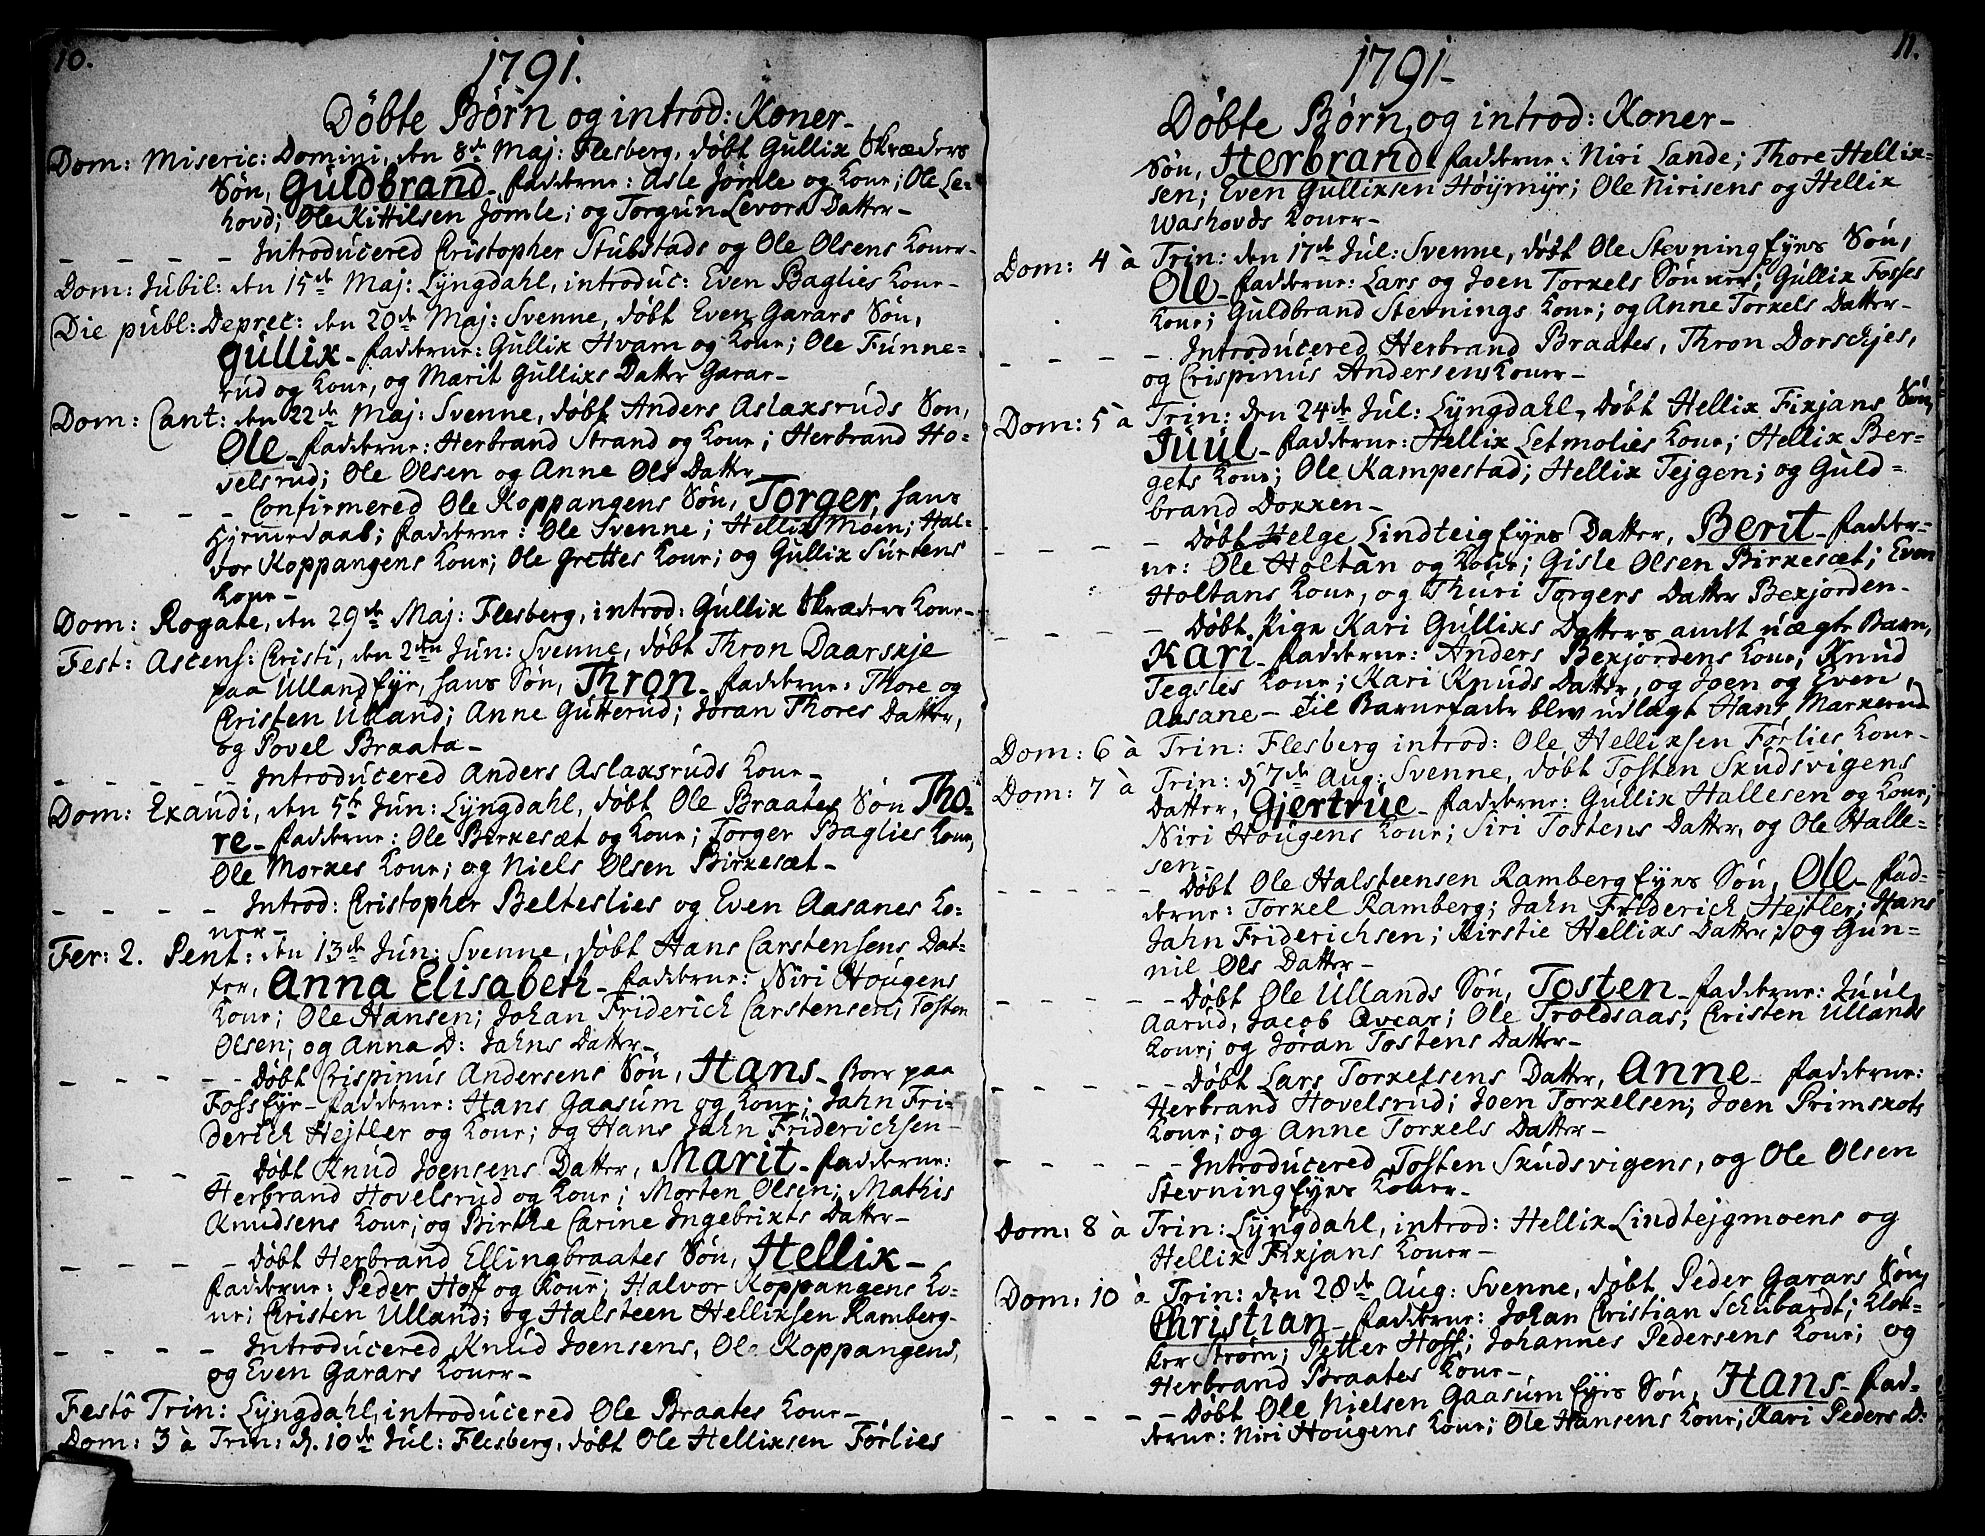 10.
1791.
Döbte Börn og introd: Koner-
Dom: Miseric: Domini, den 8de Maj: Flesberg, döbt Gullix Skræders
Sön, Guldbrand- fadderne: Asle Jömle og Kone; Ole Le=
hovd; Ole Kittilsen Jömle; og Torgun Levors Datter-
- - - - Introducered Cristopher Stubstads og Ole Olsens Koner-
Dom: Jubil: den 15de Maj: Lyngdahl, introduc: Even Baglies Kone-
Die publ: Deprec: den 20de Maj: Svenne, döbt Even Garars Sön,
Gullix- fadderne: Gullix Hvam og Kone; Ole Funne=
rud og Kone, og Marit Gullixs Datter Garar-
Dom: Cant: den 22de Maj: Svenne, döbt Anders Aslaxsruds Sön,
Ole- fadderne: Herbrand Strand og Kone; Herbrand Ho=
velsrud; Ole Olsen og Anne Ols Datter-
- - - - Confirmered Ole Koppangens Sön, Torger, hans
Hjemmedaab; fadderne: Ole Svenne; Hellix Moen; Hal=
vor Koppangens Kone; Ole Grettes Kone; og Gullix Surtens
Kone-
Dom: Rogate, den 29de Maj: Flesberg, introd: Gullix Skræders Kone-
Fest: Ascens: Christi, den 2den Jun: Svenne, döbt Thron Daarskje
paa Ulland Eye, hans Sön, Thron- fadderne: Thore og
Cristen Ulland; Anne Gutterud; Jöran Thores Datter,
og Povel Braata-
- - - - Introducered Anders Aslaxsruds Kone-
Dom: Exaudi, den 5te Jun: Lyngdahl, döbt Ole Braates Sön Tho=
re- fadderne: Ole Birkesæt og Kone; Torger Baglies Kone,
Ole Morkes Kone; og Niels Olsen Birkesæt-
- - - - Introd: Cristopher Belteslies og Even Aasanes Ko=
ner-
Fer: 2. Pent: den 13de Jun: Svenne, döbt Hans Carstensens Dat=
ter, Anna Elisabeth- fadderne: Niri Hougens
Kone; Ole Hansen; Johan Friderich Carstensen; Tosten
Olsen; og Anna D: Jahns Datter-
- - - - Döbt Crispinus Andersens Sön, Hans- Boer paa
Foss Eye- fadderne: Hans Gaasum og Kone; Jahn Fri=
derich Hejtler og Kone; og Hans Jahn Friderichsen-
- - - - Döbt Knud Joensens Datter, Marit- fadderne:
Herbrand Hovelsrud og Kone; Morten Olsen; Mathis
Knudsens Kone; og Birthe Carine Ingebrixts Datter-
- - - - Döbt Herbrand Ellingbraates Sön, Hellix-
fadderne: Peder Hoff og Kone; Halvor Koppangens Ko=
ne; Cristen Ulland; og Halsteen Hellixsen Ramberg-
- - - - Introducered Knud Joensens, Ole Koppangens,
og Even Garars Koner-
Festô Trin: Lyngdahl, introducered Ole Braates Kone-
Dom: 3 à Trin: d. 10de Jul: Flesberg, döbt Ole Hellixsen Förlies
11.
1791-
Döbte Börn, og introd: Koner-
Sön, Herbrand- fadderne: Niri Lande; Thore Hellix=
sen; Even Gullixsen Höymyr; Ole Nirisens og Hellix
Washovds Koner-
Dom: 4 à Trin: den 17de Jul: Svenne, döbt Ole Stevning Eyes Sön,
Ole- fadderne: Lars og Joen Torkels Sönner; Gullix Fosses
Kone; Guldbrand Stevnings Kone; og Anne Torkels Datter-
- - - - Introducered Herbrand Braates, Thron Dorschjes,
og Crispinus Andersens Koner-
Dom: 5 à Trin: den 24de Jul: Lyngdahl, döbt Hellix Fixjans Sön,
Juul- fadderne: Hellix Letmolies Kone; Hellix Ber=
gets Kone; Ole Kampestad; Hellix Tejgen; og Guld=
brand Dokken-
- - - - Döbt Helge Lindteig Eyes Datter, Berit- fadder=
ne: Ole Holtan og Kone; Gisle Olsen Birkesæt; Even
Holtans Kone, og Thuri Torgers Datter Bexjorden-
- - - - Döbt Pige Kari Gullixs Datters uægte Barn,
Kari- fadderne: Anders Bexjordens Kone; Knud
Tegsles Kone; Kari Knuds Datter, og Joen og Even
Aasane- Til Barnefader blev udlagt Hans Markerud
Dom: 6 à Trin: Flesberg introd: Ole Hellixsen Förlies Kone-
Dom: 7 à Trin: d. 7de Aug: Svenne, döbt Tosten Skudsvigens
Datter, Gjertrue- fadderne: Gullix Hallesen og Kone;
Niri Hougens Kone; Siri Tostens Datter, og Ole Halle=
sen-
- - - - Döbt Ole Halsteensen Ramberg Eyes Sön, Ole- fad=
derne: Torkel Ramberg; Jahn Friderich Hejtler; Hans
Jahn Friderichsen; Kirstie Hellixs Datter; og Gun=
nil Ols Datter-
- - - - Döbt Ole Ullands Sön, Tosten- fadderne: Juul
Aarud, Jacob Ovcar; Ole Troldsaas; Cristen Ullands
Kone; og Jöran Tostens Datter-
- - - - Döbt Lars Torkelsens Datter, Anne- fadderne:
Herbrand Hovelsrud; Joen Torkelsen; Joen Primskots
Kone; og Anne Torkels Datter-
- - - - Introducered Tosten Skudsvigens, og Ole Olsen
Stevning Eyes Koner-
Dom: 8 à Trin: Lyngdahl, introd: Hellix Lindtejgmoens og
Hellix Fixjans Koner-
Dom: 10 à Trin: den 28de Aug: Svenne, döbt Peder Garars Sön,
Christian- fadderne: Johan Christian Schubardt; Klok=
ker Ström; Petter Hoff; Johannes Pedersens Kone; og
Herbrand Braates Kone-
- - - - Döbt Ole Nielsen Gaasum Eyes Sön, Hans- fad=
derne: Niri Hougens Kone; Ole Hansens Kone; Kari Peders D: